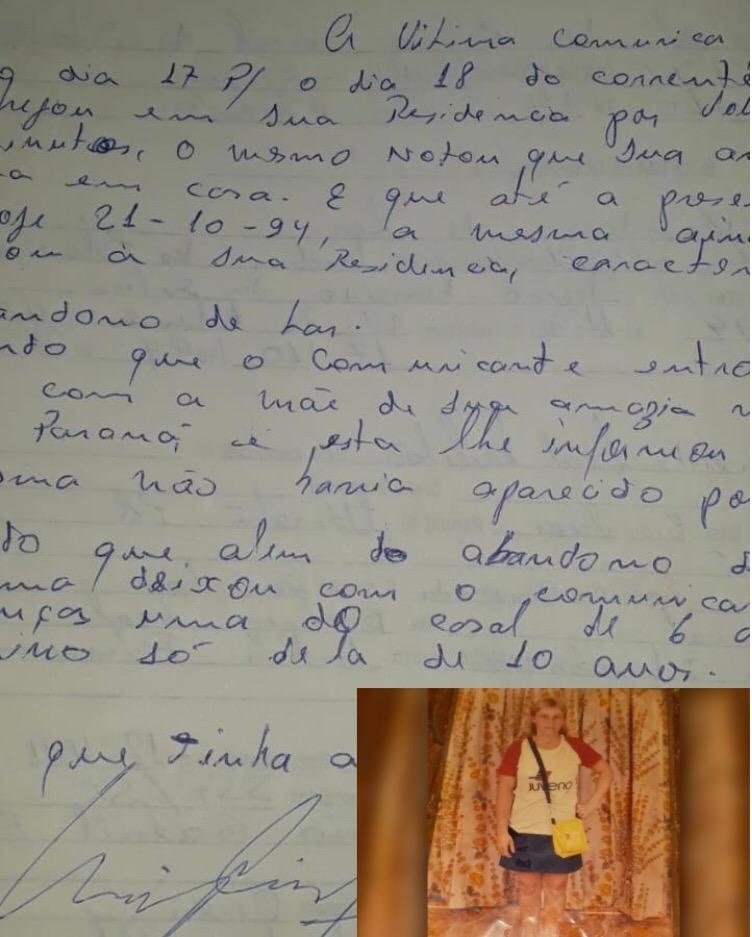 A Vitima comunica
dia 17 P/ o dia 18 do corrente
em sua Residencia por
o mesmo Notou que sua
em casa. E que até a
21-10-94, a mesma
à sua Residencia,
andono de Lar.
ndo que o Comunicante entro
com a mãe de sua amazia
Paraná e esta lhe informou
não havia aparecido
do que, alem do abandono
deixou com o comunica
uma do casal de 6
só dela de 10 anos.
que tinha a
JUVENO